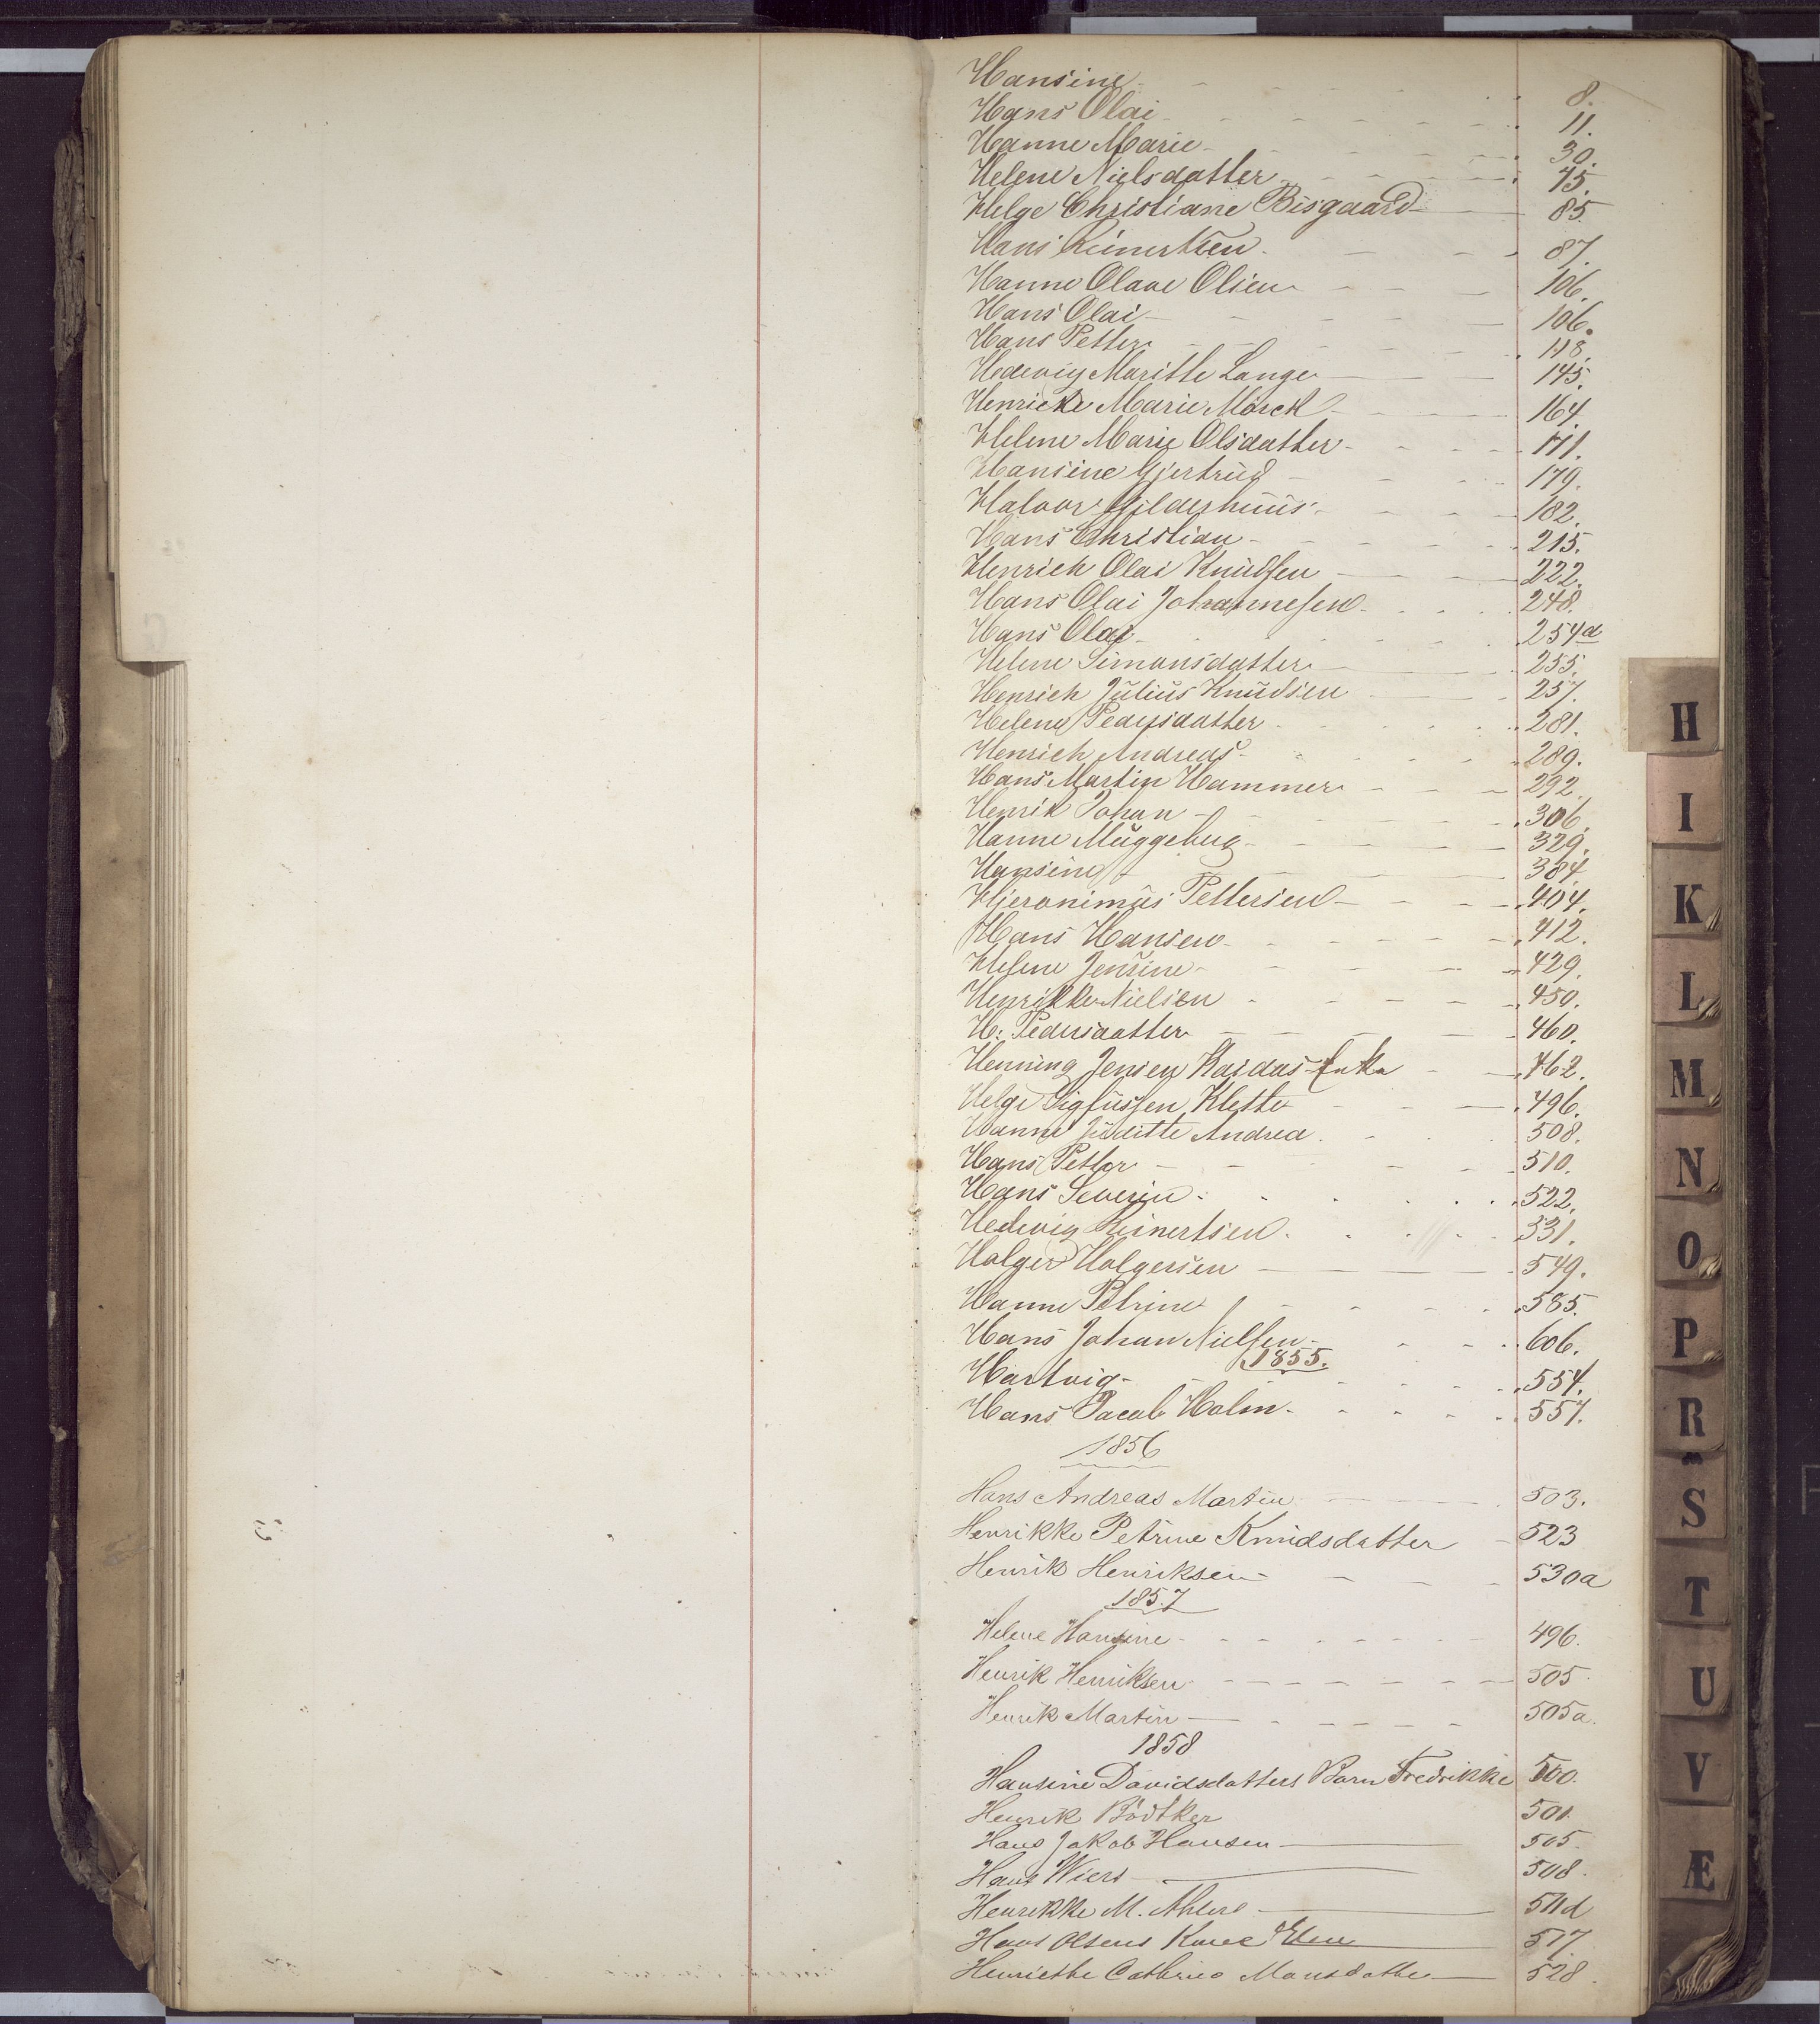 Hansine 8.
Hans Olai 11.
Hanne Marie 30.
Helene Nielsdatter 45.
Helge Christiane Bisgaard 85
Hans Reinertsen 87.
Hanne Olave Olsen 106.
Hans Olai 106.
Hans Petter 118.
Hedevig Maritte Lange 145.
Henricke Marie Mörck 164.
Helene Marie Olsdatter 171.
Hansine Gjertrud 179.
Halvor Gilderhuus 182.
Hans Christian 215.
Henrich Olai Knudsen 222.
Hans Olai Johannesen 248.
Hans Olai 254d
Helene Simonsdatter 255.
Henrich Julius Knudsen 257.
Helene Pedersdatter 281.
Henrich Andreas 289.
Hans Martin Hammer 292.
Henrik Johan 306.
Hanne Muggebug 329.
Hansine 384.
Hjeronimus Pettersen 404.
Hans Hansen 412.
Helene Jensine 429.
Henrikke Nielsen 450.
H: Pedersdatter 460.
Henning Jensen Kardas Enke 462.
Helge Sigfussen Klette 496.
Hanne Juditte Andrea 508.
Hans Petter 510.
Hans Severin 522.
Hedevig Reinertsen 531.
Holger Holgersen 549.
Hanne Petrine 585.
Hans Johan Nielsen 606.
1855.
Hartvig 554.
Hans Jacob Holm 557.
1856
Hans Andreas Martin 503.
Henrikke Petrine Knudsdatter 523
Henrik Henriksen 530a
1857
Helene Hansine 496.
Henrik Henriksen 505
Henrik Martin 505a.
1858
Hansine Davidsdatters Barn Fredrikke 500.
Henrik Bödtker 501.
Hans Jakob Hansen 505.
Hans Wiers 508.
Henrikke M. Ahlers 511d
Hans Olsens Kone Elen 517.
Henriethe Cathrine Monsdatter 528.
H
I
K
L
M
N
O
P
R
S
T
U
V
Æ